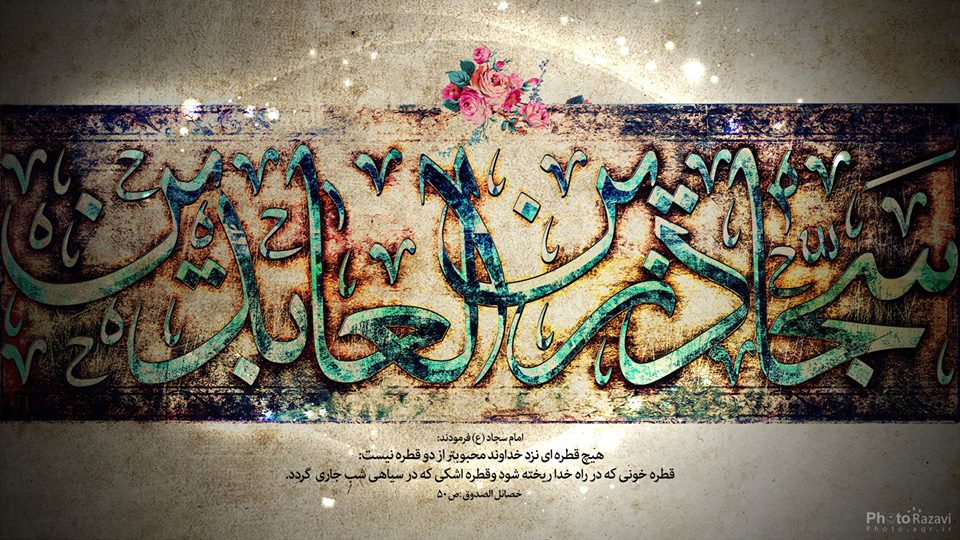 سجاد زین العابدین
امام سجاد (ع) فرمودند:
هیچ قطره ای نزد خداوند محبوبتر از دو قطره نیست:
قطره خونی که در راه خدا ریخته شود وقطره اشکی که در سیاهی شب جاری گردد.
خصائل الصدوق :ص ۵۰
PhotoRazavi
Photo.aqr.ir